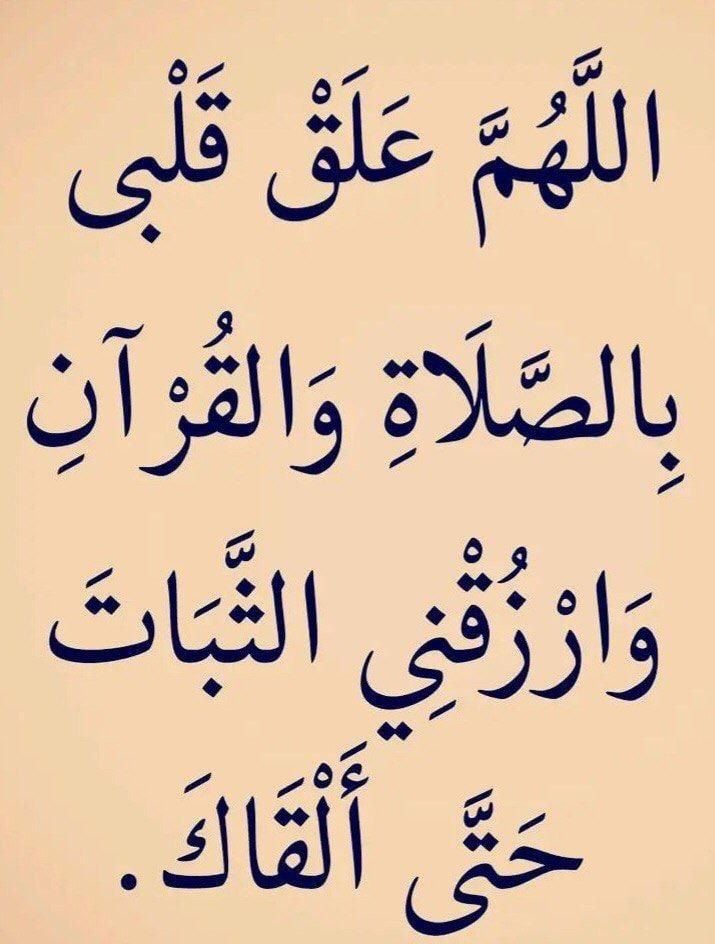 اللَّهُمَّ عَلَقْ قَلْبى
بِالصَّلَاةِ وَالقُرْآنِ
وَارْزُقْنِي الثَّبَاتَ
حَتَّى أَلْقَاكَ.